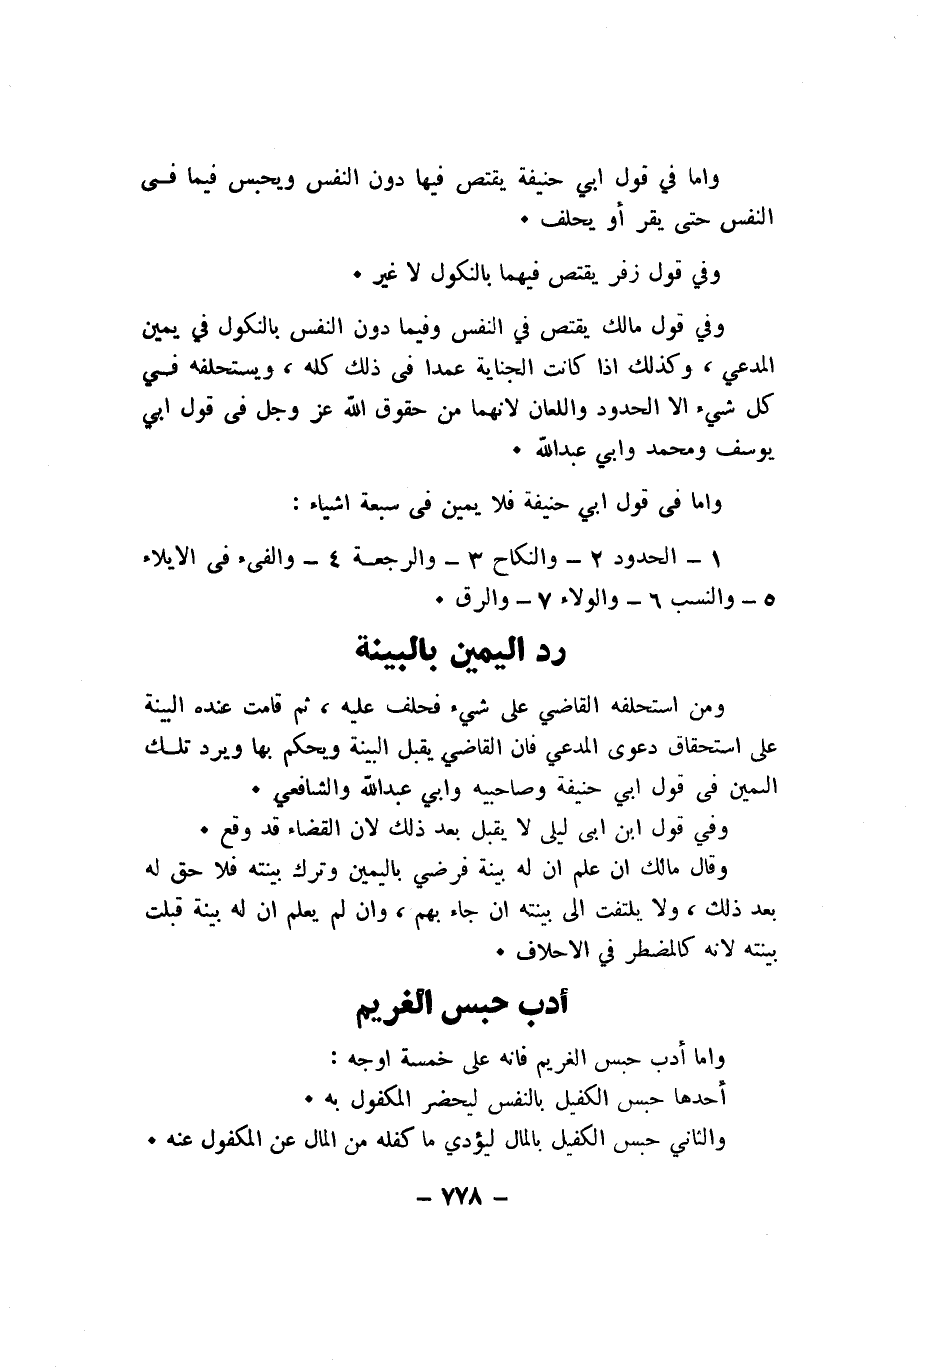 واما في قول ابي حنيفة يقتص فيها دون النفس ويحبس فيما فــى
النفس حتى يقر أو يحلف .
وفي قول زفر يقتص فيهما بالنكول لا غير .
وفي قول مالك يقتص في النفس وفيما دون النفس بالنكول في يمين
المدعي ، وكذلك اذا كانت الجناية عمدا فى ذلك كله ، ويستحلفه فــي
كل شيء الا الحدود واللعان لانهما من حقوق الله عز وجل فى قول ابي
يوسف ومحمد وابي عبدالله .
واما فى قول ابي حنيفة فلا يمين فى سبعة اشياء :
١ – الحدود ٢ – والنكاح ٣ – والرجعــة ٤ – والفىء فى الايلاء
٥ – والنسب ٦ – والولاء ٧ – والرق .
رد اليمين بالبينة
ومن استحلفه القاضي على شيء فحلف عليه ، ثم قامت عنده البينة
على استحقاق دعوى المدعي فان القاضي يقبل البينة ويحكم بها ويرد تلــك
اليمين فى قول ابي حنيفة وصاحبيه وابي عبدالله والشافعي .
وفي قول ابن ابى ليلى لا يقبل بعد ذلك لان القضاء قد وقع .
وقال مالك ان علم ان له بينة فرضي باليمين وترك بينته فلا حق له
بعد ذلك ، ولا يلتفت الى بينته ان جاء بهم ، وان لم يعلم ان له بينة قبلت
بينته لانه كالمضطر في الاحلاف .
أدب حبس الغريم
واما أدب حبس الغريم فانه على خمسة اوجه :
أحدها حبس الكفيل بالنفس ليحضر المكفول به .
والثاني حبس الكفيل بالمال ليؤدي ما كفله من المال عن المكفول عنه .
– ٧٧٨ –